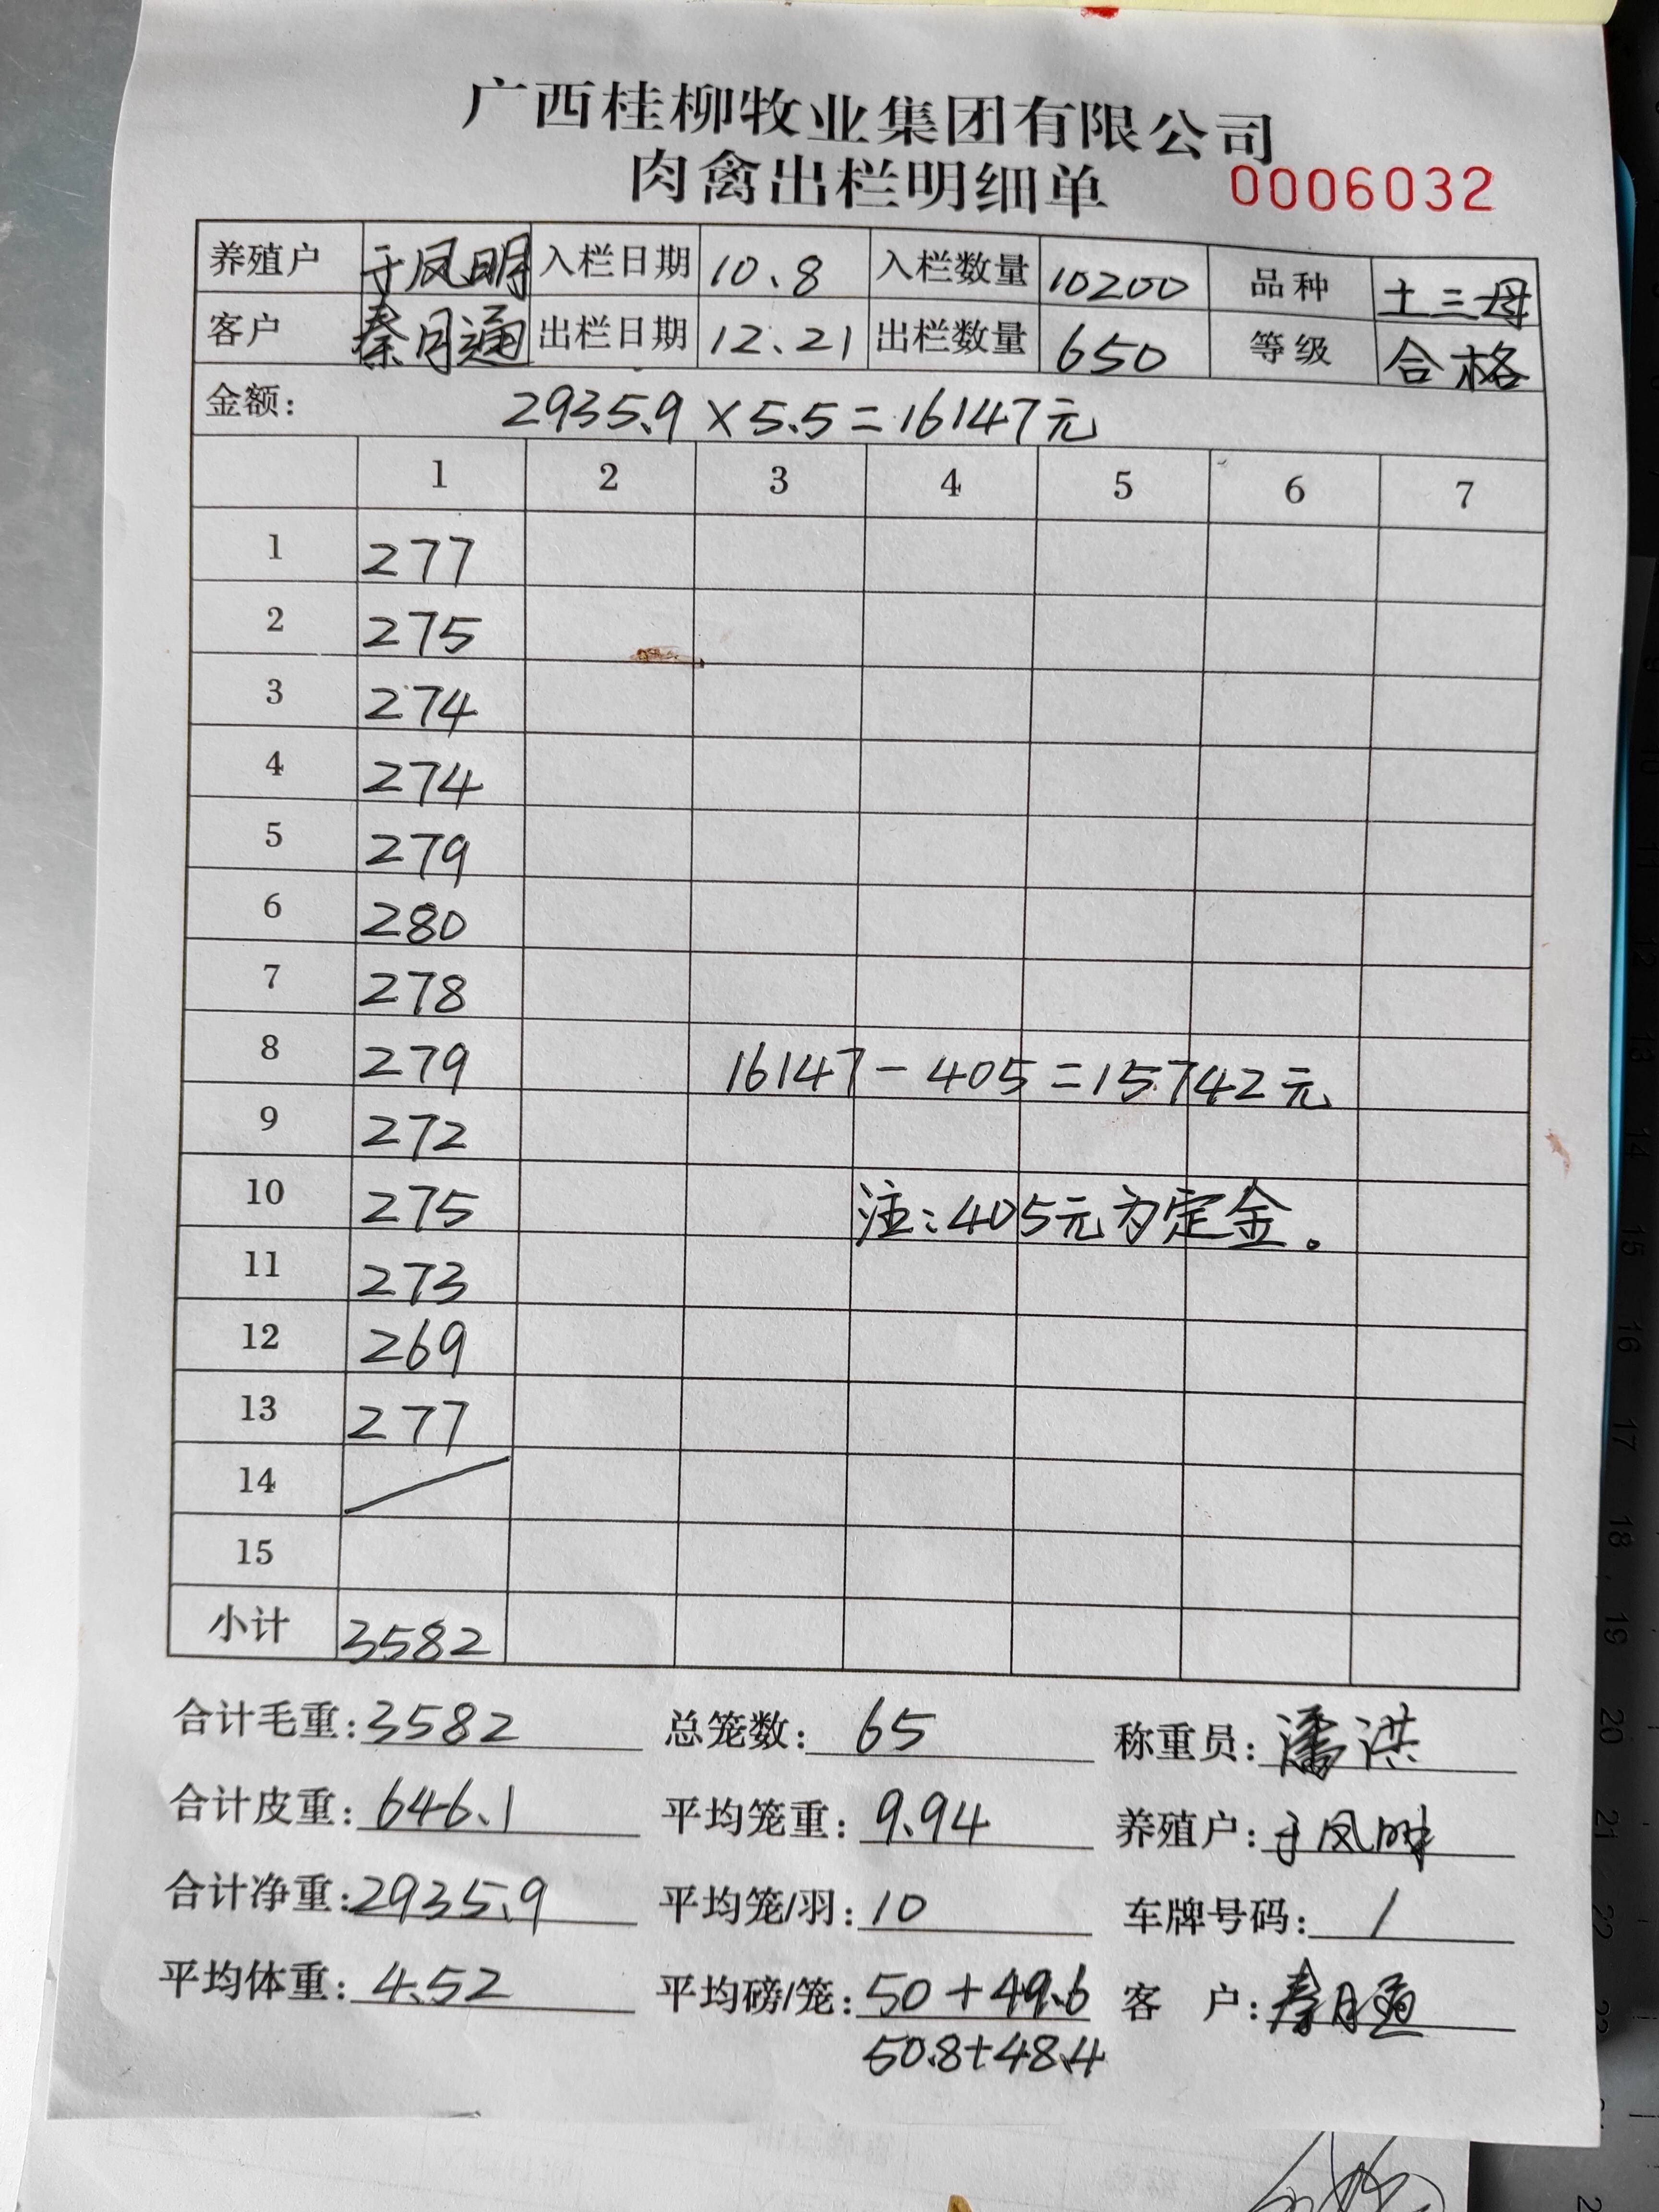 广西桂柳牧业集团有限公司
肉禽出栏明细单 0006032
养殖户 于凤明 入栏日期 10.8 入栏数量 10200 品种 土三母
客户 秦月通 出栏日期 12.21 出栏数量 650 等级 合格
金额: 2935.9×5.5=16147元
1 2 3 4 5 6 7
1 277
2 275
3 274
4 274
5 279
6 280
7 278
8 279 16147-405=15742元
9 272
10 275 注:405元为定金。
11 273
12 269
13 277
14
15
小计 3582
合计毛重:3582 总笼数:65 称重员:潘洪
合计皮重:646.1 平均笼重:9.94 养殖户:于凤明
合计净重:2935.9 平均笼/羽:10 车牌号码:/
平均体重:4.52 平均磅/笼:50+49.6 客 户:秦月通
50.8+48.4